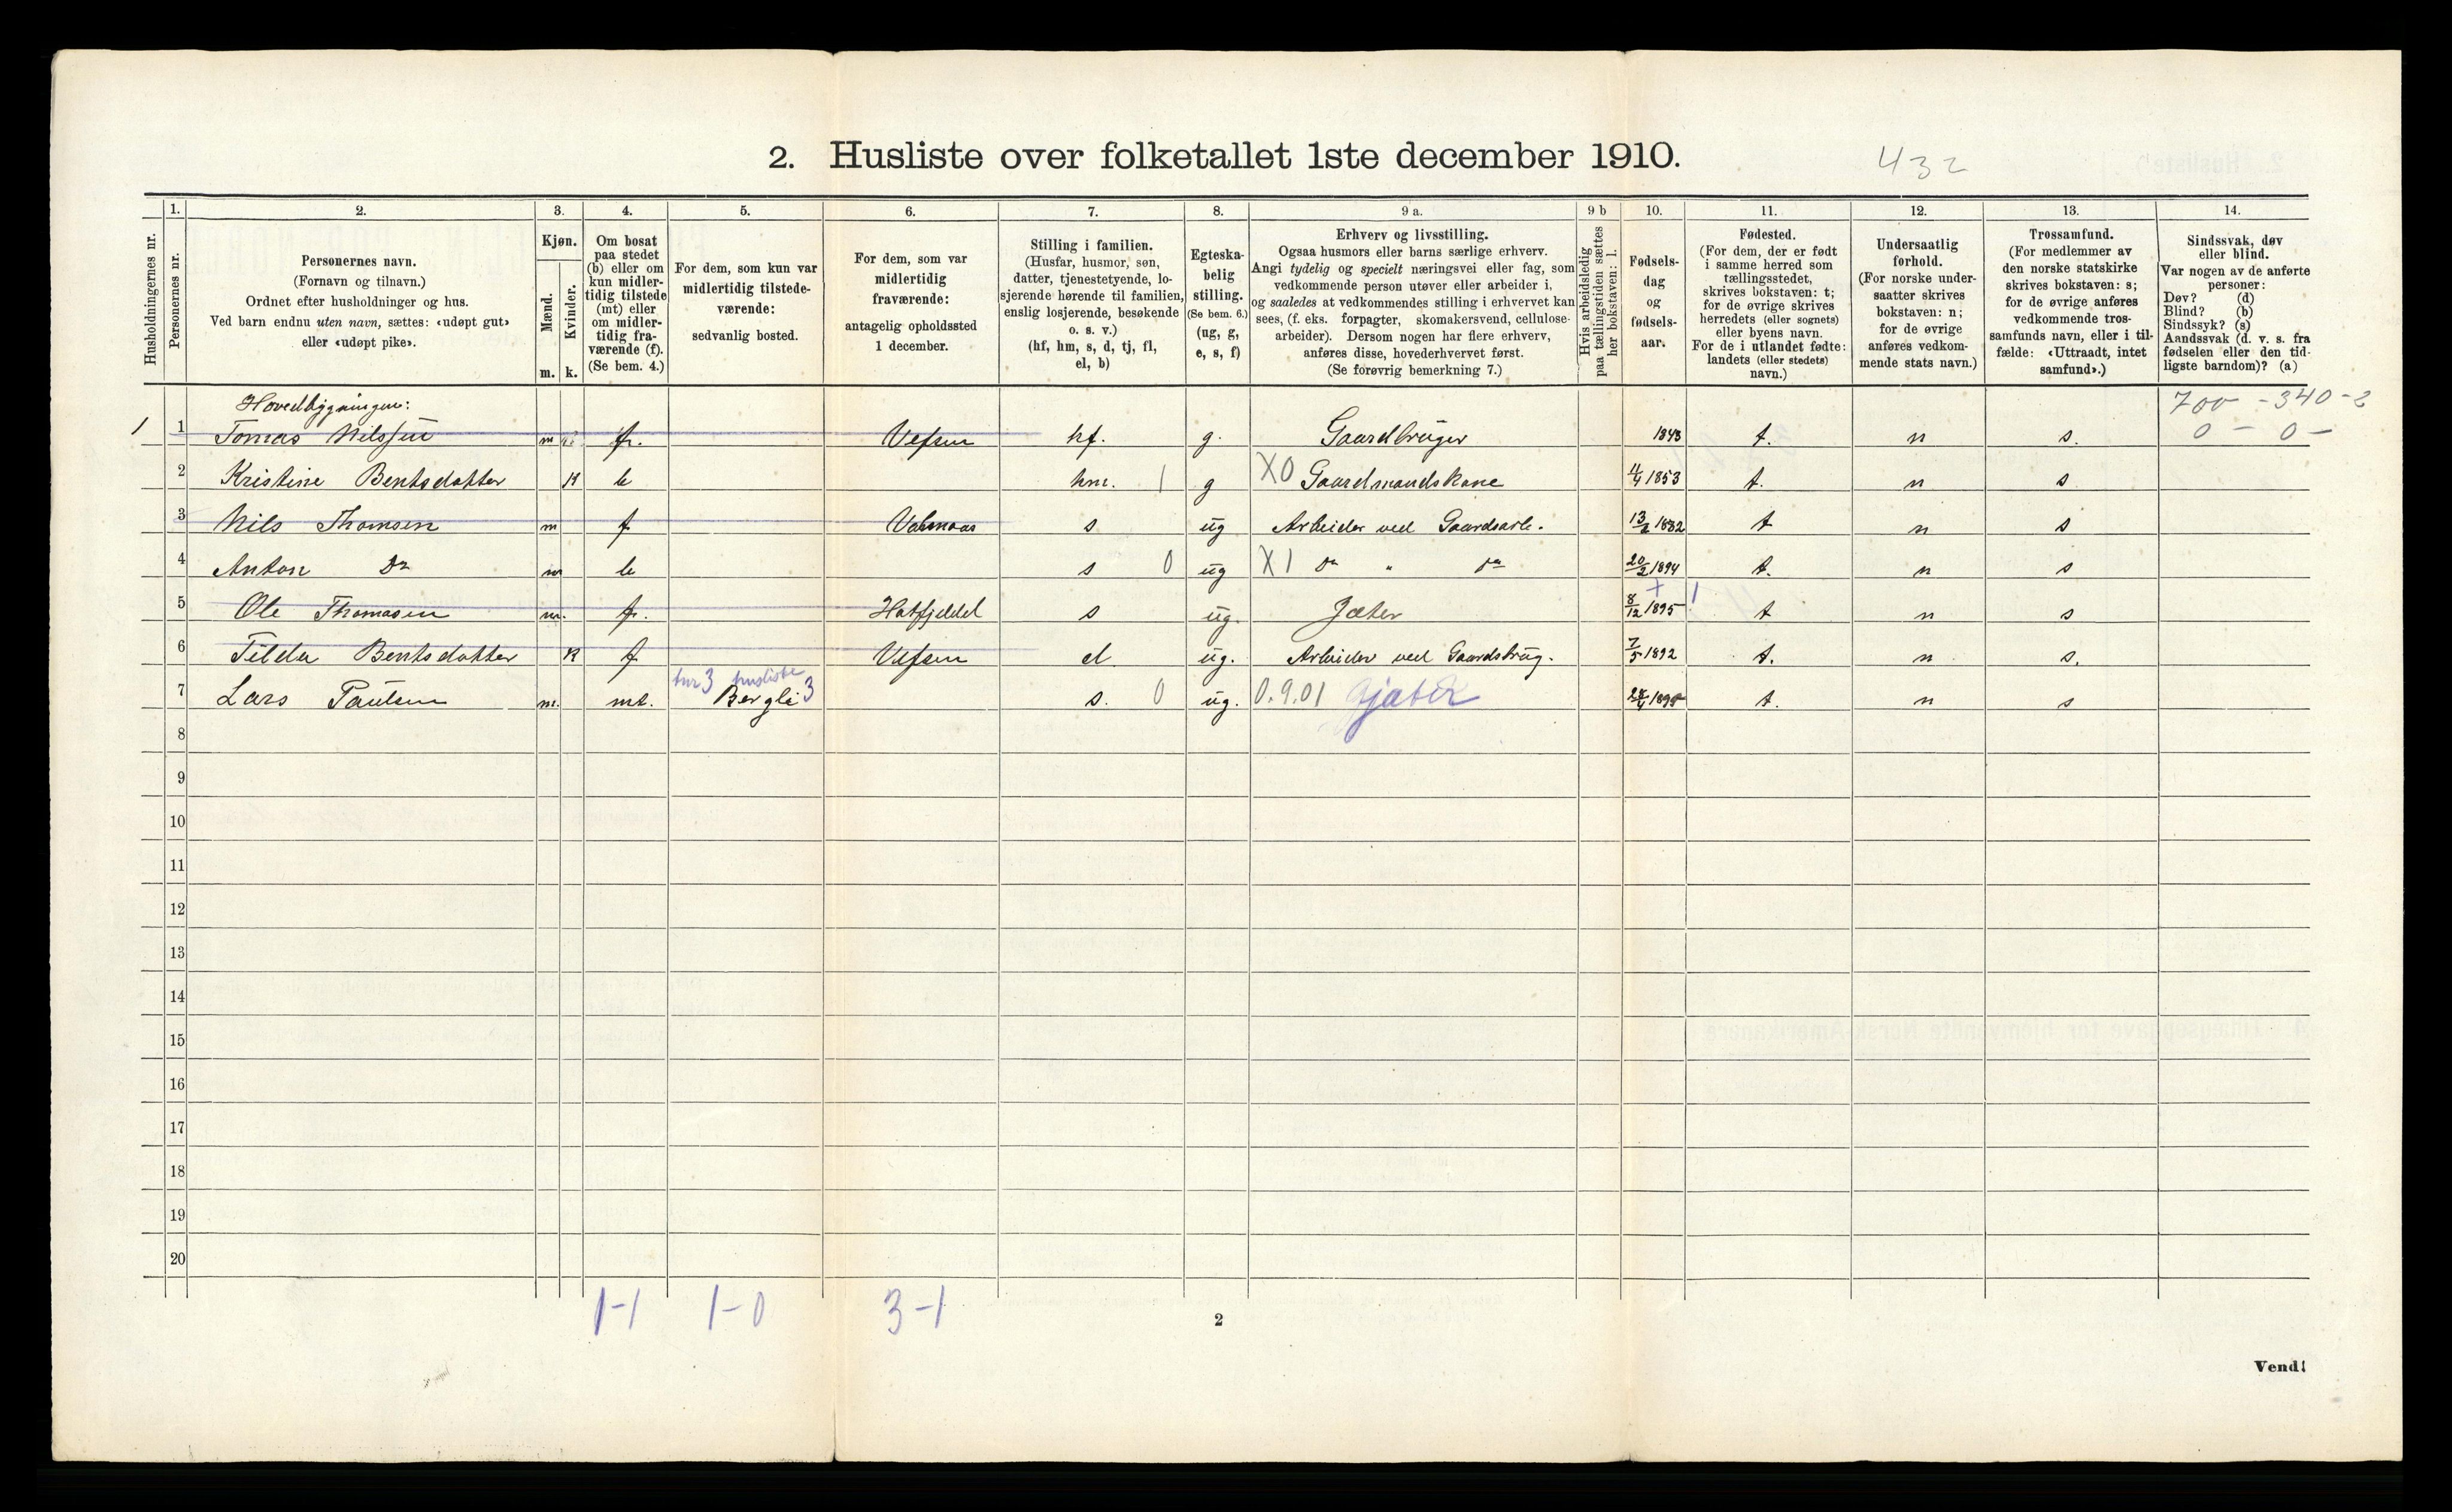 2. Husliste over folketallet 1ste december 1910.
432
1. 2. 3. 4. 5. 6. 7. 8. 9 a. 9 b 10. 11. 12. 13. 14.
Husholdningernes nr.
Personernes nr.
Personernes navn.
(Fornavn og tilnavn.)
Ordnet efter husholdninger og hus.
Ved barn endnu uten navn, sættes: «udøpt gut»
eller «udøpt pike».
Kjøn.
Mænd.
Kvinder.
m. k.
Om bosat
paa stedet
(b) eller om
kun midler-
tidig tilstede
(mt) eller
om midler-
tidig fra-
værende (f).
(Se bem. 4.)
For dem, som kun var
midlertidig tilstede-
værende:
sedvanlig bosted.
For dem, som var
midlertidig
fraværende:
antagelig opholdssted
1 december.
Stilling i familien.
(Husfar, husmor, søn,
datter, tjenestetyende, lo-
sjerende hørende til familien,
enslig losjerende, besøkende
o. s. v.)
(hf, hm, s, d, tj, fl,
el, b)
Egteska-
belig
stilling.
(Se bem. 6.)
(ug, g,
e, s, f)
Erhverv og livsstilling.
Ogsaa husmors eller barns særlige erhverv.
Angi tydelig og specielt næringsvei eller fag, som
vedkommende person utøver eller arbeider i,
og saaledes at vedkommendes stilling i erhvervet kan
sees, (f. eks. forpagter, skomakersvend, cellulose-
arbeider). Dersom nogen har flere erhverv,
anføres disse, hovederhvervet først.
(Se forøvrig bemerkning 7.)
Hvis arbeidsledig
paa tællingstiden sættes
her bokstaven: l.
Fødsels-
dag
og
fødsels-
aar.
Fødested.
(For dem, der er født
i samme herred som
tællingsstedet,
skrives bokstaven: t;
for de øvrige skrives
herredets (eller sognets)
eller byens navn.
For de i utlandet fødte:
landets (eller stedets)
navn.)
Undersaatlig
forhold.
(For norske under-
saatter skrives
bokstaven: n;
for de øvrige
anføres vedkom-
mende stats navn.)
Trossamfund.
(For medlemmer av
den norske statskirke
skrives bokstaven: s;
for de øvrige anføres
vedkommende tros-
samfunds navn, eller i til-
fælde: «Uttraadt, intet
samfund».)
Sindssvak, døv
eller blind.
Var nogen av de anførte
personer:
Døv? (d)
Blind? (b)
Sindssyk? (s)
Aandssvak (d. v. s. fra
fødselen eller den tid-
ligste barndom)? (a)
Hovedbygningen: 700 - 340 - 2
1 1 Tomas Nilssen m f. Vefsen hf. g. Gaardbruger 1843 t. n s. 0 - 0 -
2 Kristine Bentsdatter K b hm. 1 g X0 Gaardmandskone 4/4 1853 t. n s
3 Nils Thomsen m f s ug Arbeider ved Gaardsarb. 13/2 1882 t n s
4 Anton Do m b s 0 ug X1 Do " Do 20/2 1894 t. n s
5 Ole Thomasen m. f. Hatfjeldd s ug. Jæter 8/12 1895 1 t n s
6 Tilda Bentsdatter K f Vefsen d ug. Arbeider ved Gaardsbrug. 7/5 1892 t. n s.
husliste
7 Lars Paulsen m. mt. Bergli 3 s. 0 ug. 0.9.01 Gjæter t. n s
8
9
10
11
12
13
14
15
16
17
18
19
20
1-1 1-0 3-1
2
Vend!